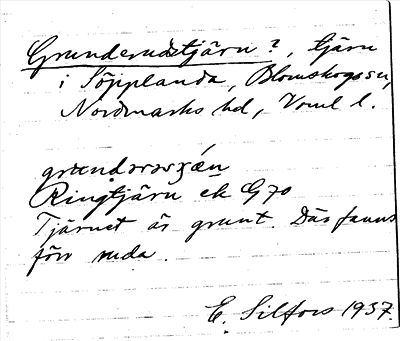 Grunderudstjärn?, tjärn
i Söpplanda, Blomskogs sn,
Nordmarks hd, Vrml l.
Ringtjärn ek G70
Tjärnet är grunt. Där fanns
förr ruda.
E. Silfors 1937.